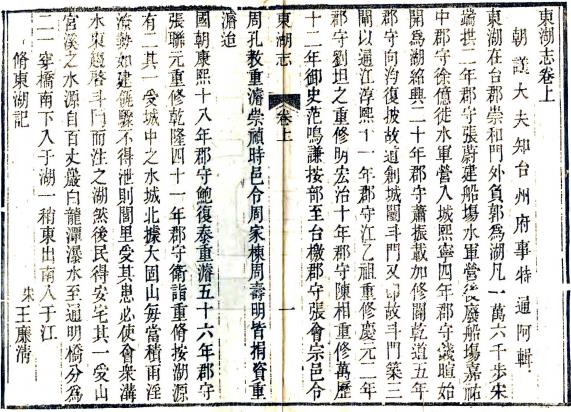 東湖志卷上
朝議大夫知台州府事特通阿輯
東湖在台郡崇和門外負郭為湖凡一萬六千步宋
端拱二年郡守張蔚建船場水軍營後廢船場嘉祐
中郡守徐億徙水軍營入城熙寧四年郡守錢暄始
開為湖紹興二十年郡守蕭振載加修闢乾道五年
郡守向汮復披故道創城闉斗門又卽故斗門築三
閘以通江淳熙十一年郡守江乙祖重修慶元二年
郡守劉坦之重修明宏治十年郡守陳相重修萬歷
十二年御史范鳴謙按部至台檄郡守張會宗邑令
東湖志 卷上 一
周孔教重濬崇禎時邑令周家棟周壽明皆捐資重
濬迨
國朝康熙十八年郡守鮑復泰重濬五十六年郡守
張聯元重修乾隆四十一年郡守衛詣重脩按湖源
有二其一受城中之水城北據大固山每當積雨淫
流勢如建瓴驟不得泄則閭里受其患必使會衆溝
水東趨啓斗門而注之湖然後民得安宅其一受山
宫溪之水源自百丈巖白龍潭瀑水至通明橋分為
二一穿橋南下入于湖一稍東出南入于江
脩東湖記
宋王廉清